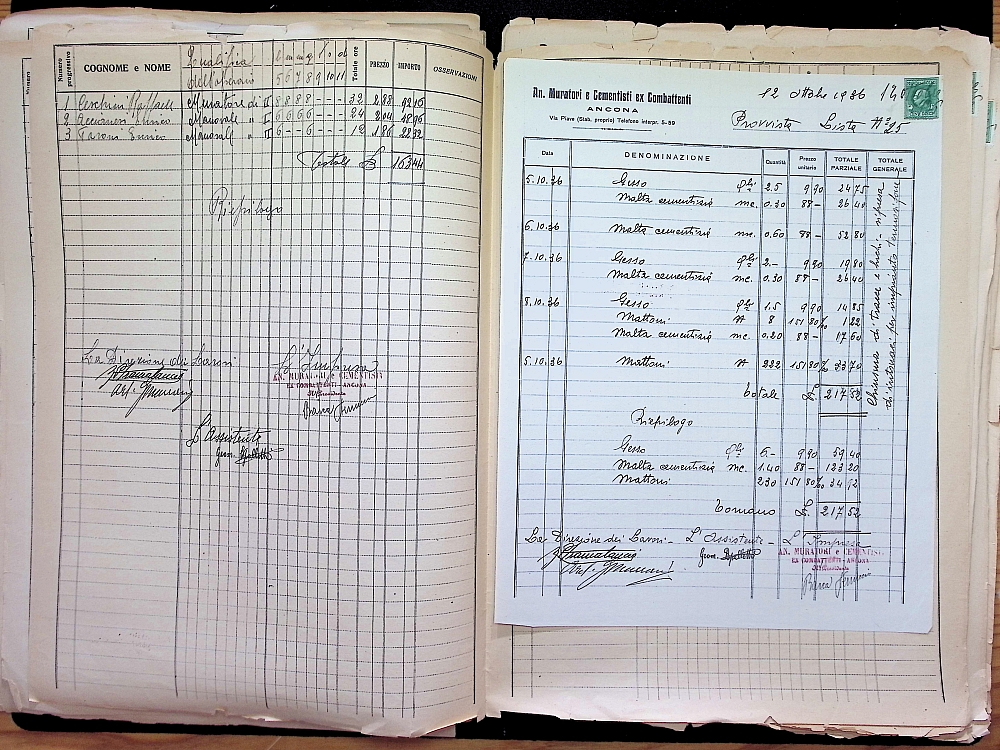 Numero progressivo
COGNOME e NOME
Qualifica dell'operaio
5 6 7 8 9 10 11
Totale ore
PREZZO
IMPORTO
OSSERVAZIONI
1 Ceschini Raffaele Muratore di II 8 8 8 8 - - - 32 2,88 92 16
2 Manovale " II 6 6 6 6 - - - 24 2,04 48 96
3 Taroni Enrico Manovale " II 6 - - 6 - - - 12 1,86 22 32
Totale £ 163 44
Riepilogo
La Direzione dei Lavori
L'Impresa
AN. MURATORI e CEMENTISTI
EX COMBATTENTI - ANCONA
Il Presidente
L'Assistente
Geom.
An. Muratori e Cementisti ex Combattenti
ANCONA
Via Piave (Stab. proprio) Telefono interpr. 5-89
12 ottobre 1936
Provvista Lista N° 25
Data DENOMINAZIONE Quantità Prezzo unitario TOTALE PARZIALE TOTALE GENERALE
5.10.36 Gesso Qli 2.5 9 90 24 75
Malta cementizia mc. 0.30 88 - 26 40
6.10.36 Malta cementizia mc. 0.60 88 - 52 80
7.10.36 Gesso Qli 2.- 9 90 19 80
Malta cementizia mc. 0.30 88 - 26 40
8.10.36 Gesso Qli 1.5 9 90 14 85
Mattoni N 8 151 80 ‰ 1 22
Malta cementizia mc. 0.20 88 - 17 60
5.10.36 Mattoni N 222 151 80 ‰ 33 70
Totale £ 217 52
Chiusura di tracce e buchi - ripresa
di intonaci per impianto termosifone
Riepilogo
Gesso Qli 6.- 9 90 59 40
Malta cementizia mc. 1.40 88 - 123 20
Mattoni 230 151 80 ‰ 34 92
Tornano £ 217 52
La Direzione dei Lavori - L'Assistente - L'Impresa
Geom.
AN. MURATORI e CEMENTISTI
EX COMBATTENTI - ANCONA
Il Presidente